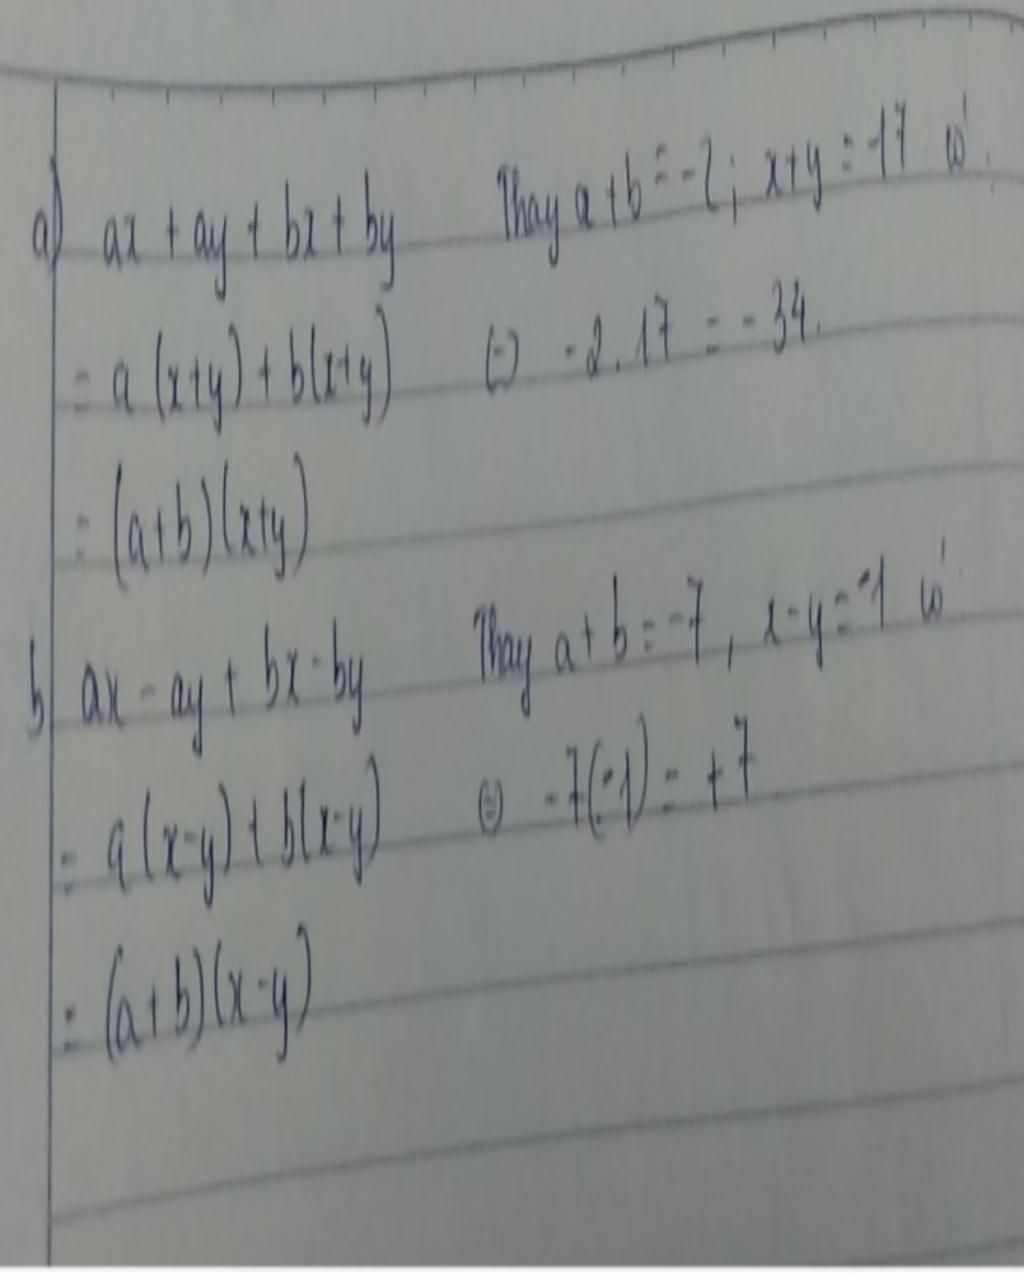 a) ax + ay + bx + by Thay a + b = -2; x+y = -17 có
= a (x+y) + b(x+y) (=) -2.17 = -34.
= (a+b)(x+y)
b) ax - ay + bx - by Thay a + b = -7, x-y = -1 có
= a(x-y) + b(x-y) (=) -7(-1) = +7
= (a+b)(x-y)